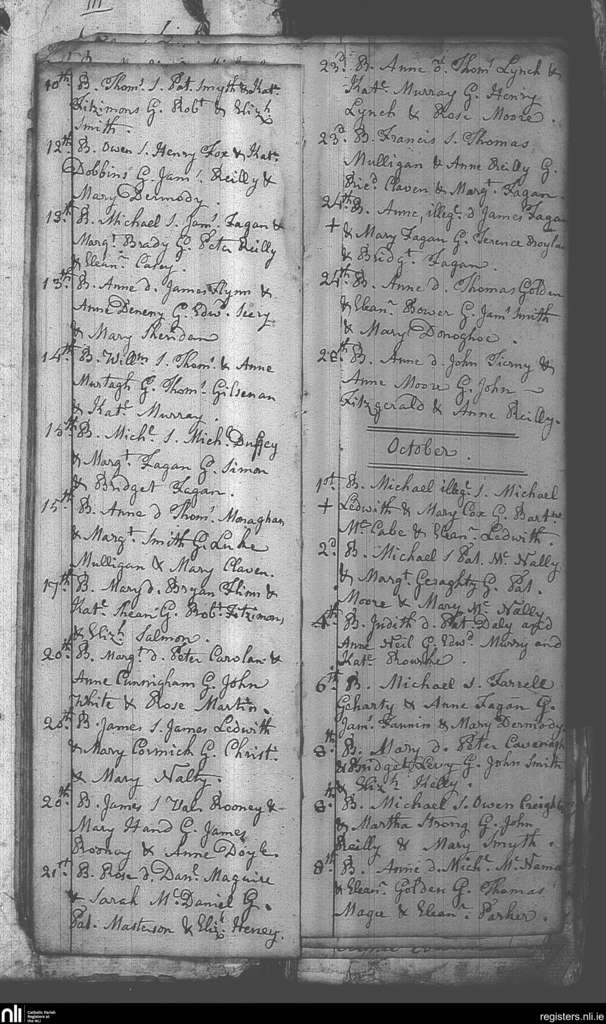 10th B. Thoms. S. Pat. Smyth & Kat.
Fitzimons G. Robt. & Elizh.
Smith.
12th B. Owen S. Henry Fox & Kat.
Dobbins G. Jams. Reilly &
Mary Dermody.
13th B. Michael S. Jams. Fagan &
Margt. Brady G. Peter Reilly
& Eleanr. Casey.
13th B. Anne d. James Flynn &
Anne Deneny G. Edwd. Seery
& Mary Sheridan
14th B. Willm S. Thoms. & Anne
Murtagh G. Thoms. Gilsenan
& Kate. Murray.
15th B. Michl. S. Michl. Duffey
& Margt. Fagan G. Simon
& Bridget Fagan.
15th B. Anne d Thoms. Monaghan
& Margt. Smith G. Luke
Mulligan & Mary Claven.
17th B. Mary d. Bryan &
Kate. Shean G. Robt. Fitzimons
& Elizh. Salmon.
20th B. Margt. d. Peter Carolan &
Anne Cunningham G. John
White & Rose Martin.
20th B. James S. James Ledwith
& Mary Cormick G. Christ.
& Mary Nalty.
20th B. James S Val. Rooney &
Mary Hand G. James
Rooney & Anne Doyle.
21st B. Rose d. Danl. Maguire
& Sarah McDaniel G.
Pat. Masterson & Eliz. Heney.
23d. B. Anne d. Thoms. Lynch &
Kate. Murray G. Henry
Lynch & Rose Moore.
23d. B. Francis S. Thomas
Mulligan & Anne Reilly G.
Ricd. Claven & Margt. Fagan.
24th B. Anne, illegt. d James Fagan
+ & Mary Fagan G. Terence Boylan
& Bridgt. Fagan.
24th B. Anne d. Thomas Golden
& Eleanr. Bower G. Jams. Smith
& Mary Donoghoe.
28th B. Anne d. John Tierny &
Anne Moore G. John
Fitzgerald & Anne Reilly.
October.
1st B. Michael illegt. S. Michael
+ Ledwith & Mary Cox G. Bartw.
McCabe & Eleanr. Ledwith.
2d. B. Michael S Pat. McNally
& Margt. Geraghty G. Pat.
Moore & Mary McNally
4th B. Judith d. Pat Daly and
Anne Neil G. Edwd. Murry and
Kate. Rourke.
6th B. Michael S. Farrell
Geharty & Anne Fagan G.
Jams. Fannin & Mary Dermody.
8th B. Mary d. Peter Cavenagh
& Bridget Levy G. John Smith
& Elizh. Kelly.
8th B. Michael S. Owen Creighton
& Martha Strong G. John
Reilly & Mary Smyth.
8th B. Anne d. Michl. McNama
& Eleanr. Golden G. Thomas
Magee & Eleanr. Parker.
nli
Catholic Parish
Registers at
the NLI
registers.nli.ie